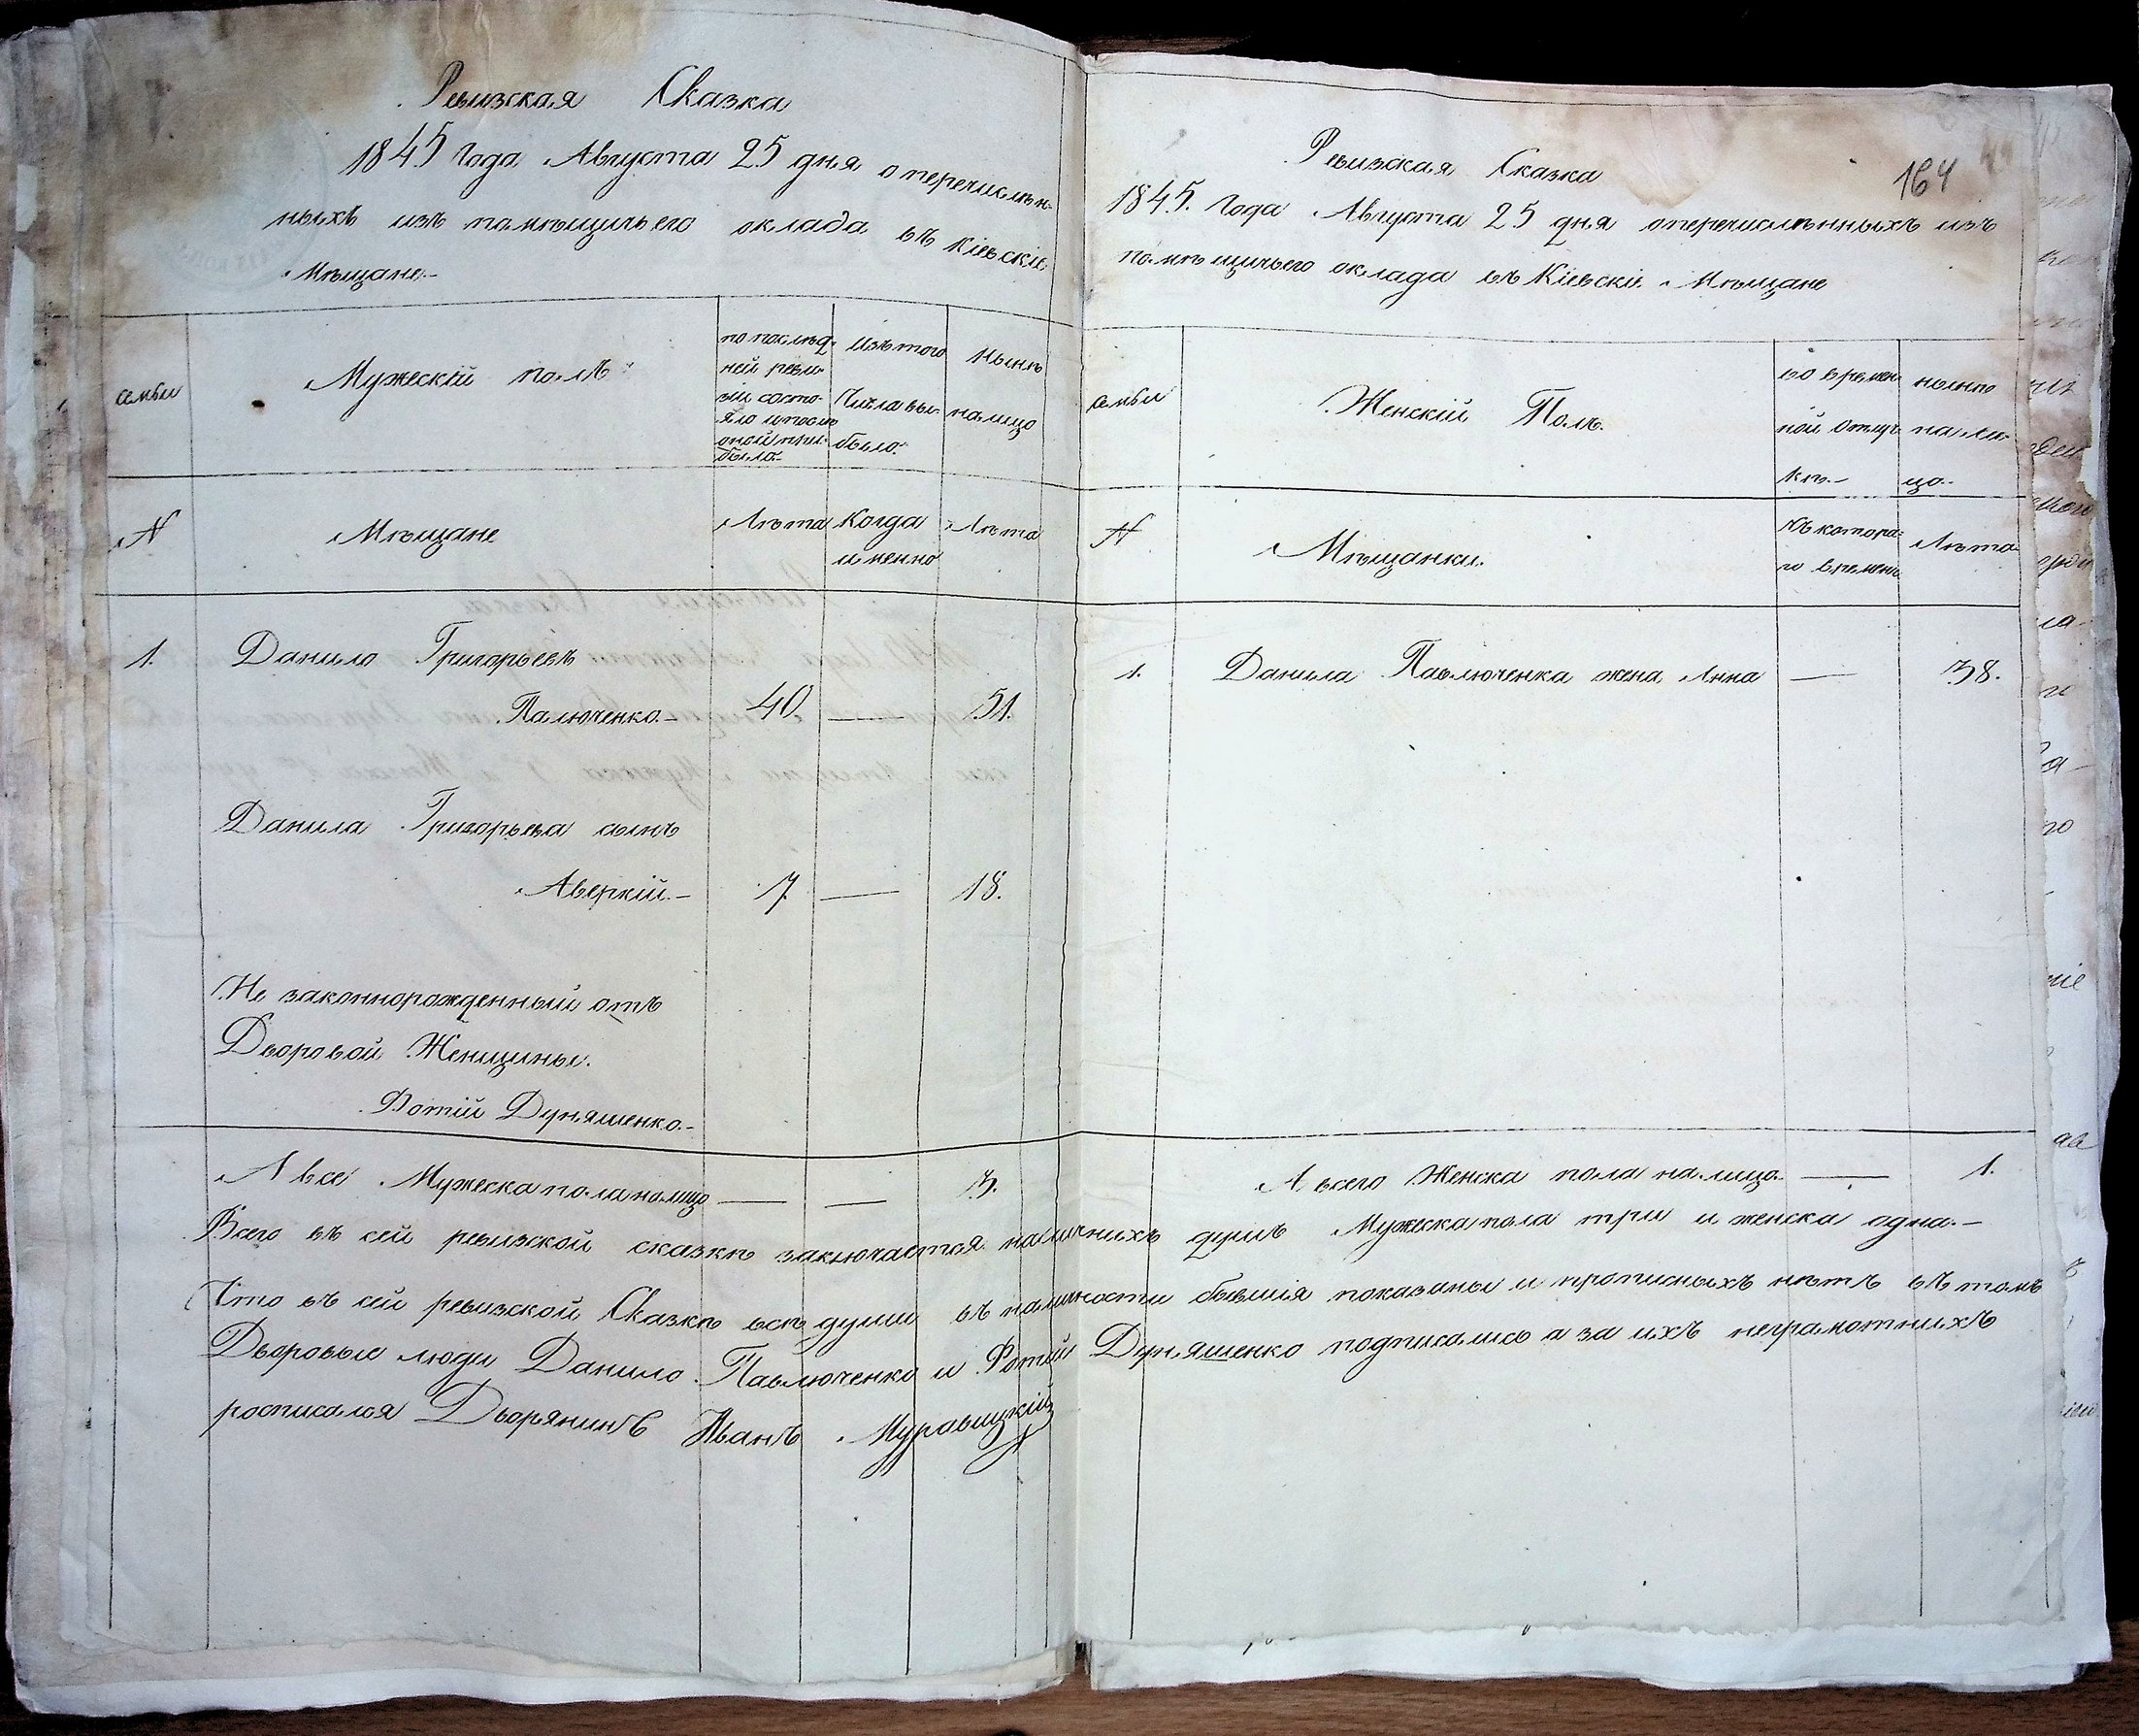 Ревизская Сказка
1845 года Августа 25 дня о перечислен-
ныхъ изъ помѣщичьего оклада въ Кіевскіе
Мѣщане.-
семьи
Мужескій полъ
по послѣд-
ней реви-
зіи состо-
яло и после
оной при-
было.-
Изъ того
Числа вы-
было.
Нынѣ
налицо
№
Мѣщане
Лѣта
Когда
именно
Лѣта
1.
Данило Григорьевъ
Палюченко.- 40. — 51.
Данила Григорьева сынъ
Аверкій.- 7. — 18.
Не законнорожденный отъ
Дворовой Женщины.
Фотій Дуняшенко.-
А все Мужеска пола налицо — — 3.
164
Ревизская Сказка
1845. Года Августа 25 дня о перечисленныхъ изъ
помѣщичьего оклада въ Кіевскіе Мѣщане
семьи
Женскій Полъ.
во времен-
ной отлуч-
кѣ.-
нынѣ
на ли-
цо.-
№
Мѣщанки.
Съ котора-
го времени
Лѣта
1. Данила Павлюченка жена Анна — 38.
А всего Женска пола на лицо. — 1.
Всего въ сей ревизской сказкѣ заключается наличныхъ душъ Мужеска пола три и женска одна.-
Что въ сей ревизской Сказкѣ всѣ души въ наличности бывшія показаны и прописныхъ нѣтъ въ томъ
Дворовые люди Данило Павлюченко и Фотій Дуняшенко подписались а за ихъ неграмотныхъ
росписался Дворянинъ Иванъ Муравицкій